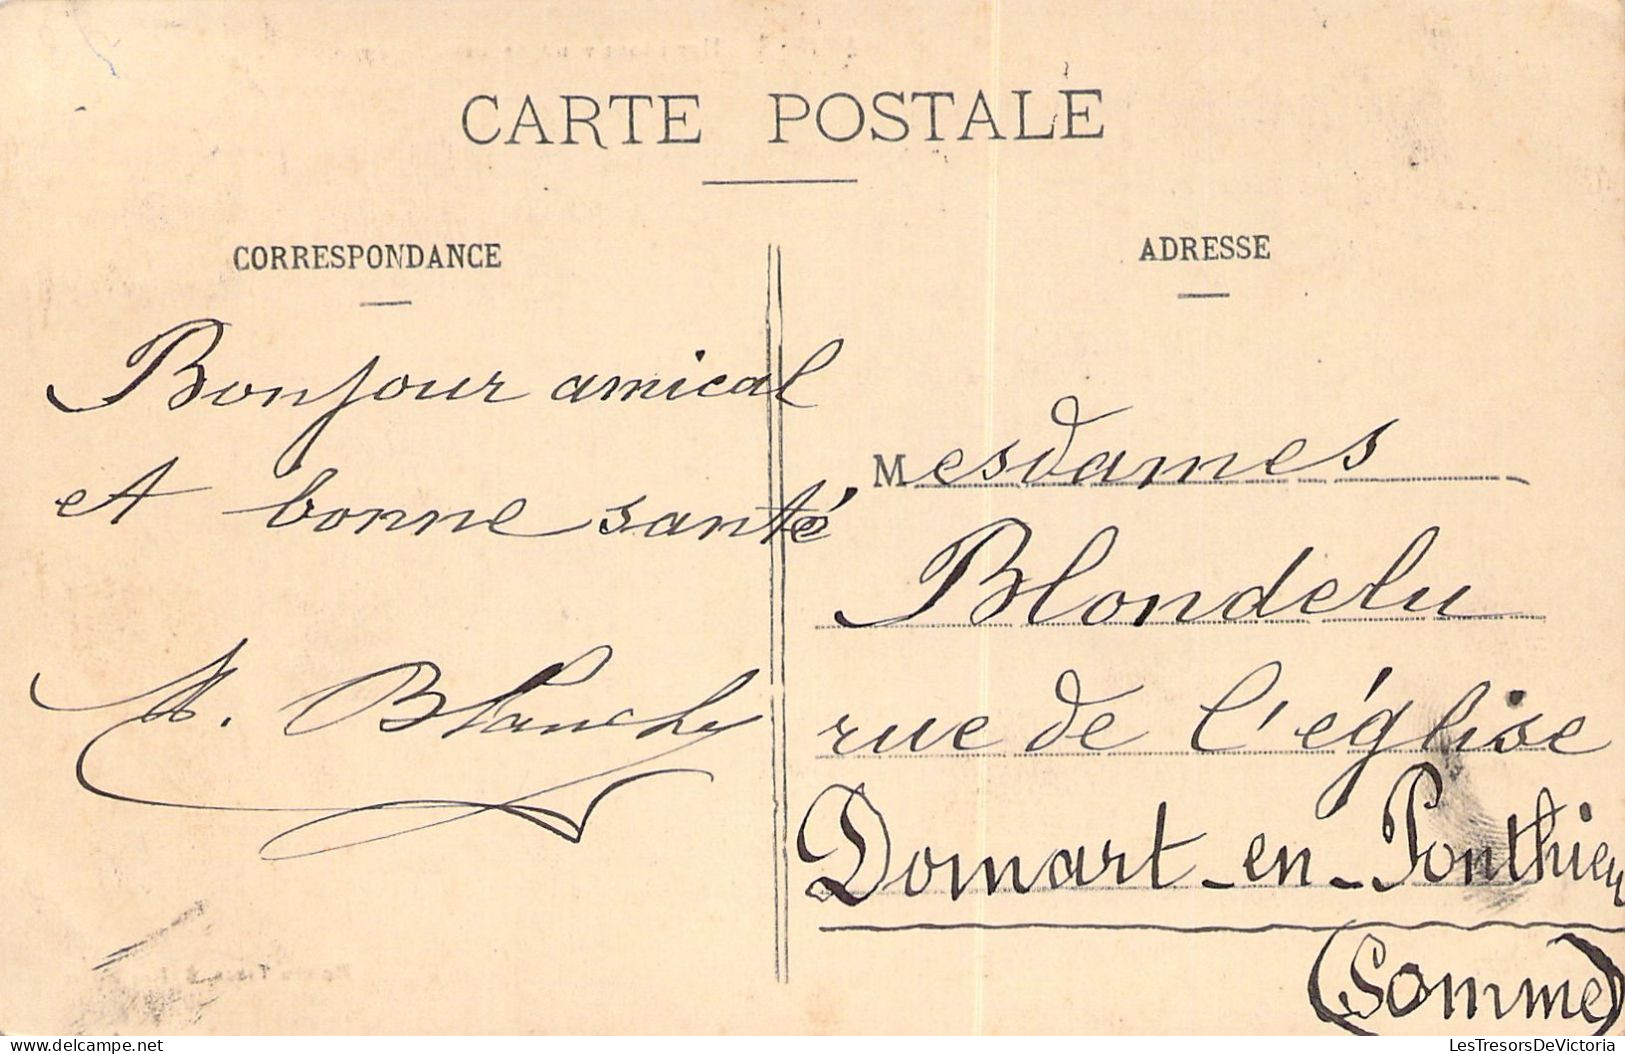 CARTE POSTALE
CORRESPONDANCE
Bonjour amical
et bonne santé
A. Blanchy
ADRESSE
Mesdames
Blondelu
rue de l'église
Domart-en-Ponthieu
(Somme)
delcampe.net
LesTresorsDeVictoria